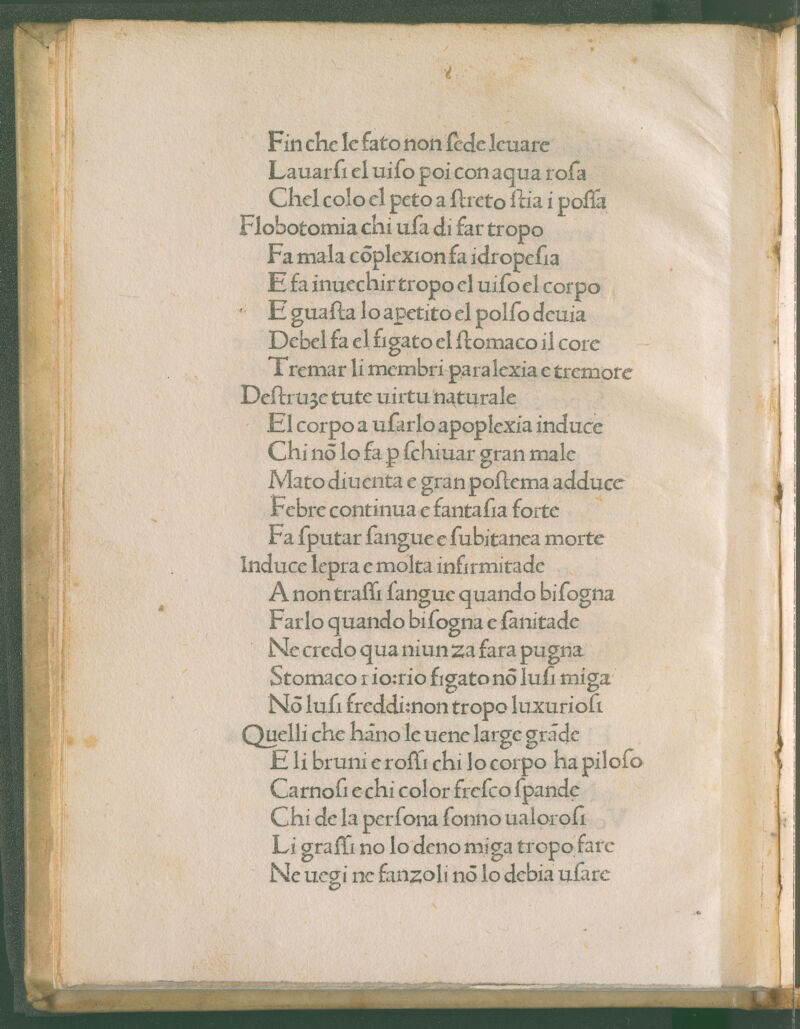 Fin che le fato non ſe de leuare
Lauarſi el uiſo poi con aqua roſa
Chel colo el peto a ſtreto ſtia i poſſa
Flobotomia chi uſa di far tropo
Fa mala cõplexion fa idropeſia
E fa inuechir tropo el uiſo el corpo
E guaſta lo apetito el polſo deuia
Debel fa el figato el ſtomaco il core
Tremar li membri paralexia e tremore
Deſtruʒe tute uirtu naturale
El corpo a uſarlo apoplexia induce
Chi nõ lo fa ꝑ ſchiuar gran male
Mato diuenta e gran poſtema adduce
Febre continua e fantaſia forte
Fa ſputar ſangue e ſubitanea morte
Induce lepra e molta infirmitade
A non traſſi ſangue quando biſogna
Farlo quando biſogna e ſanitade
Ne credo qua niun za fara pugna
Stomaco rio:rio figato nõ luſi miga
Nõ luſi freddi:non tropo luxurioſi
Quelli che hãno le uene large grãde
E li bruni e roſſi chi lo corpo ha piloſo
Carnoſi e chi color freſco ſpande
Chi de la perſona ſonno ualoroſi
Li graſſi no lo deno miga tropo fare
Ne uegi ne fanzoli nõ lo debia uſare